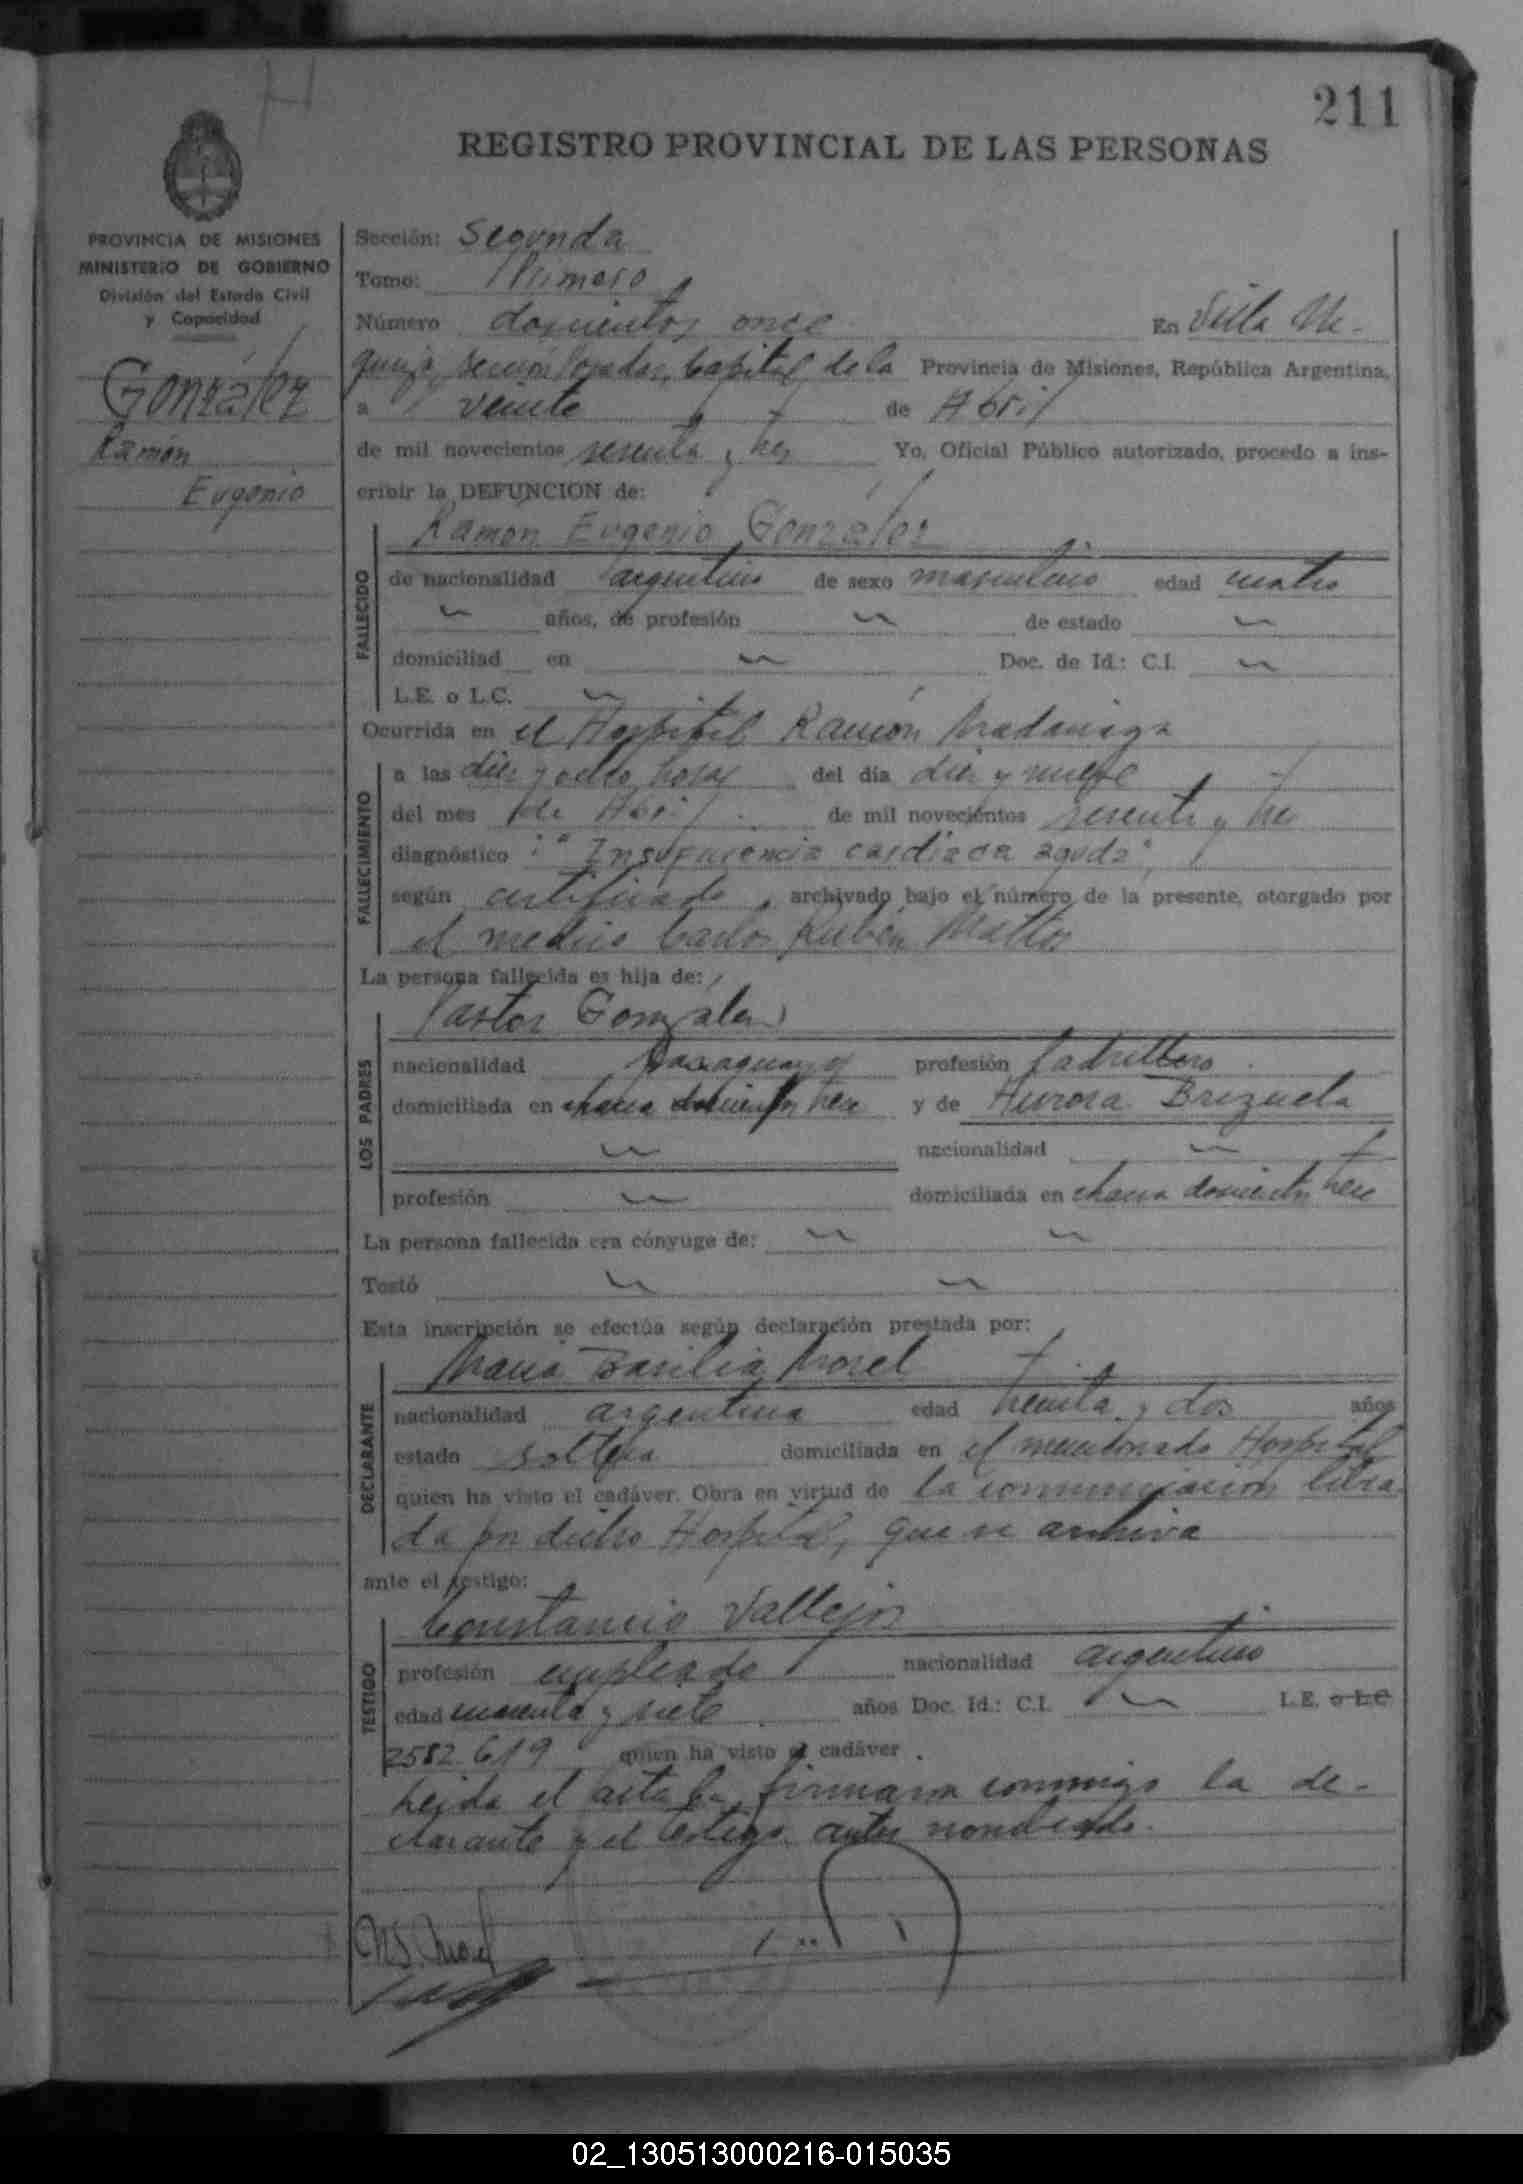 211
REGISTRO PROVINCIAL DE LAS PERSONAS
PROVINCIA DE MISIONES
MINISTERIO DE GOBIERNO
División del Estado Civil
y Capacidad
González
Ramón
Eugenio
Sección: Segunda
Tomo: Primero
Número doscientos once En Villa Ur-
quiza, sección Posadas, Capital de la Provincia de Misiones, República Argentina,
a veinte de Abril
de mil novecientos sesenta y tres Yo, Oficial Público autorizado, procedo a ins-
cribir la DEFUNCION de:
Ramón Eugenio González
FALLECIDO
de nacionalidad argentino de sexo masculino edad cuatro
años, de profesión de estado
domiciliad en Doc. de Id.: C.I.
L.E. o L.C.
Ocurrida en el Hospital Ramón Madariaga
FALLECIMIENTO
a las diez y ocho horas del día diez y nueve
del mes de Abril de mil novecientos sesenta y tres
diagnóstico : "Insuficiencia cardiaca aguda",
según certificado, archivado bajo el número de la presente, otorgado por
el médico Carlos Rubén Mattos
La persona fallecida es hija de:
LOS PADRES
Pastor Gonzalez
nacionalidad paraguayo profesión ladrillero
domiciliada en chacra doscientos trece y de Aurora Brizuela
nacionalidad
profesión domiciliada en chacra doscientos trece
La persona fallecida era cónyuge de:
Testó
Esta inscripción se efectúa según declaración prestada por:
DECLARANTE
María Basilia Morel
nacionalidad argentina edad treinta y dos años
estado soltera domiciliada en el mencionado Hospital
quien ha visto el cadáver. Obra en virtud de la comunicación libra-
da por dicho Hospital, que se archiva
ante el testigo:
TESTIGO
Constancio Vallejos
profesión empleado nacionalidad argentino
edad cuarenta y siete años Doc. Id.: C.I. L.E. o L.C
2582.619 quien ha visto el cadáver.
Leída el acta la firmaron conmigo la de-
clarante y el testigo antes nombrado.
02_130513000216-015035